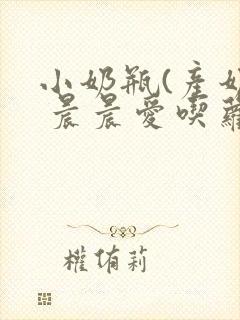 小奶瓶(產奶
晨晨愛喫蘿
權侑莉